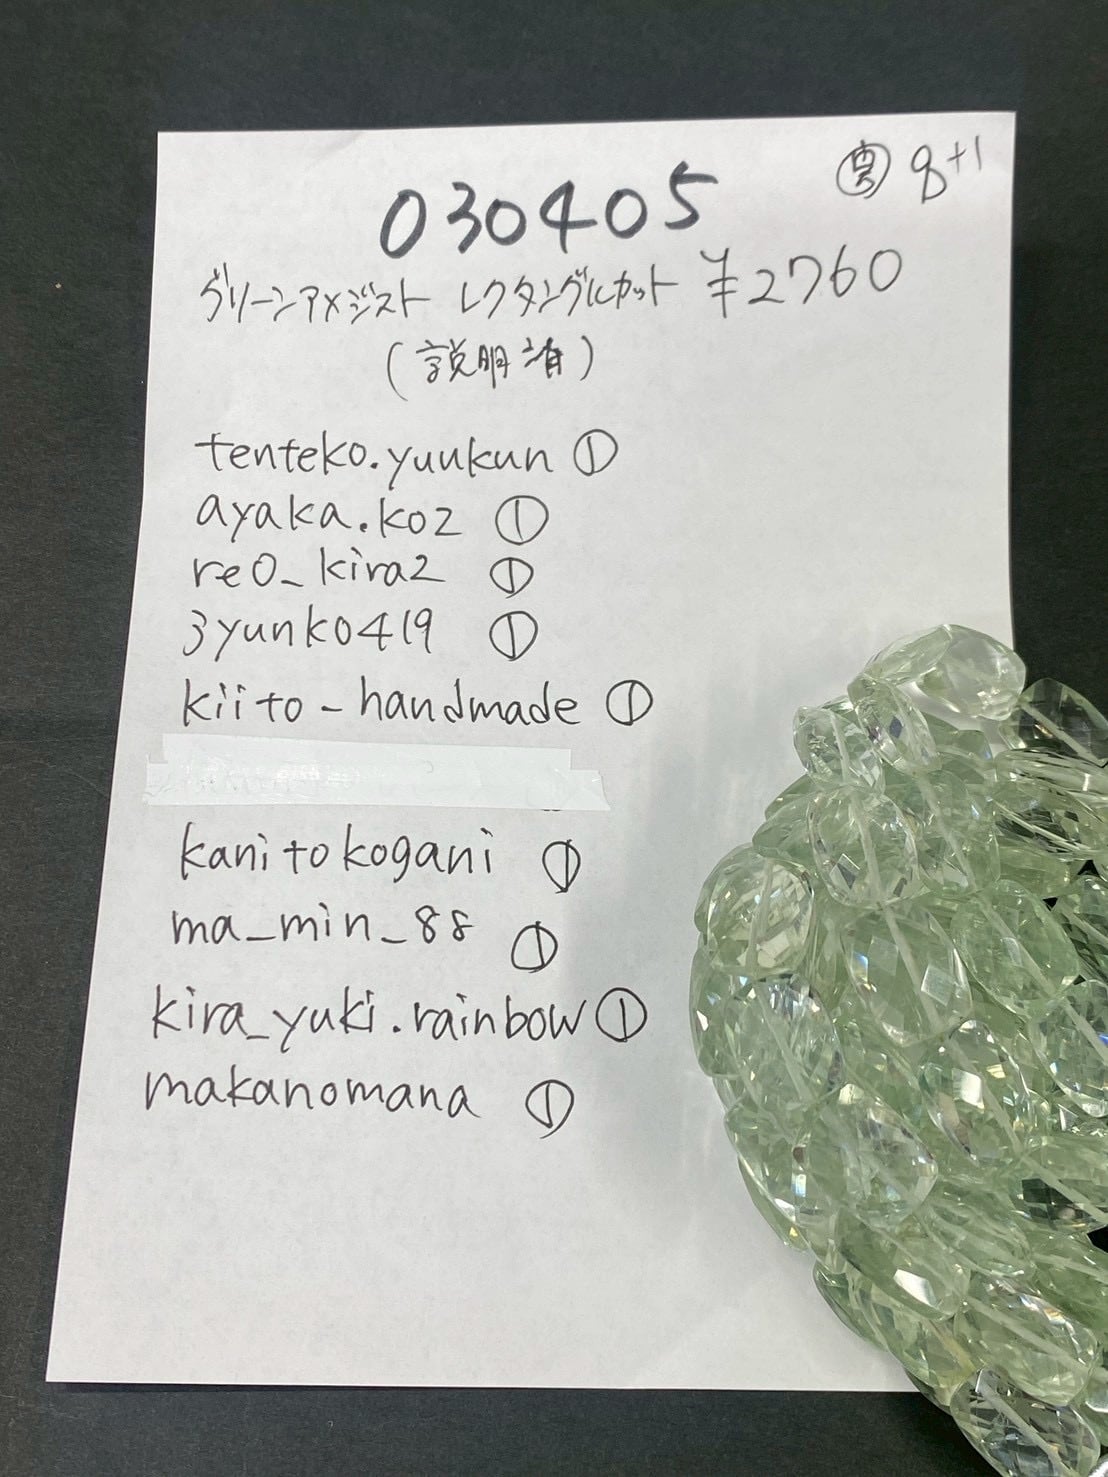 8+1
030405
グリーンアメジスト レクタングルカット ¥2760
(説明済)
tenteko.yuukun ①
ayaka.koz ①
re0_kira2 ①
3yunko419 ①
kiito-handmade ①
kanitokogani ①
ma_min_88 ①
kira_yuki.rainbow ①
makanomana ①